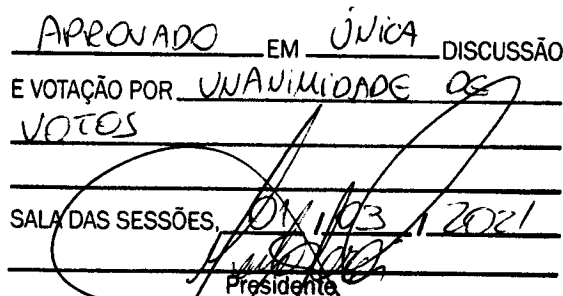 APROVADO EM ÚNICA DISCUSSÃO
E VOTAÇÃO POR UNANIMIDADE DE
VOTOS
SALA DAS SESSÕES, 01 / 03 / 2021
Presidente